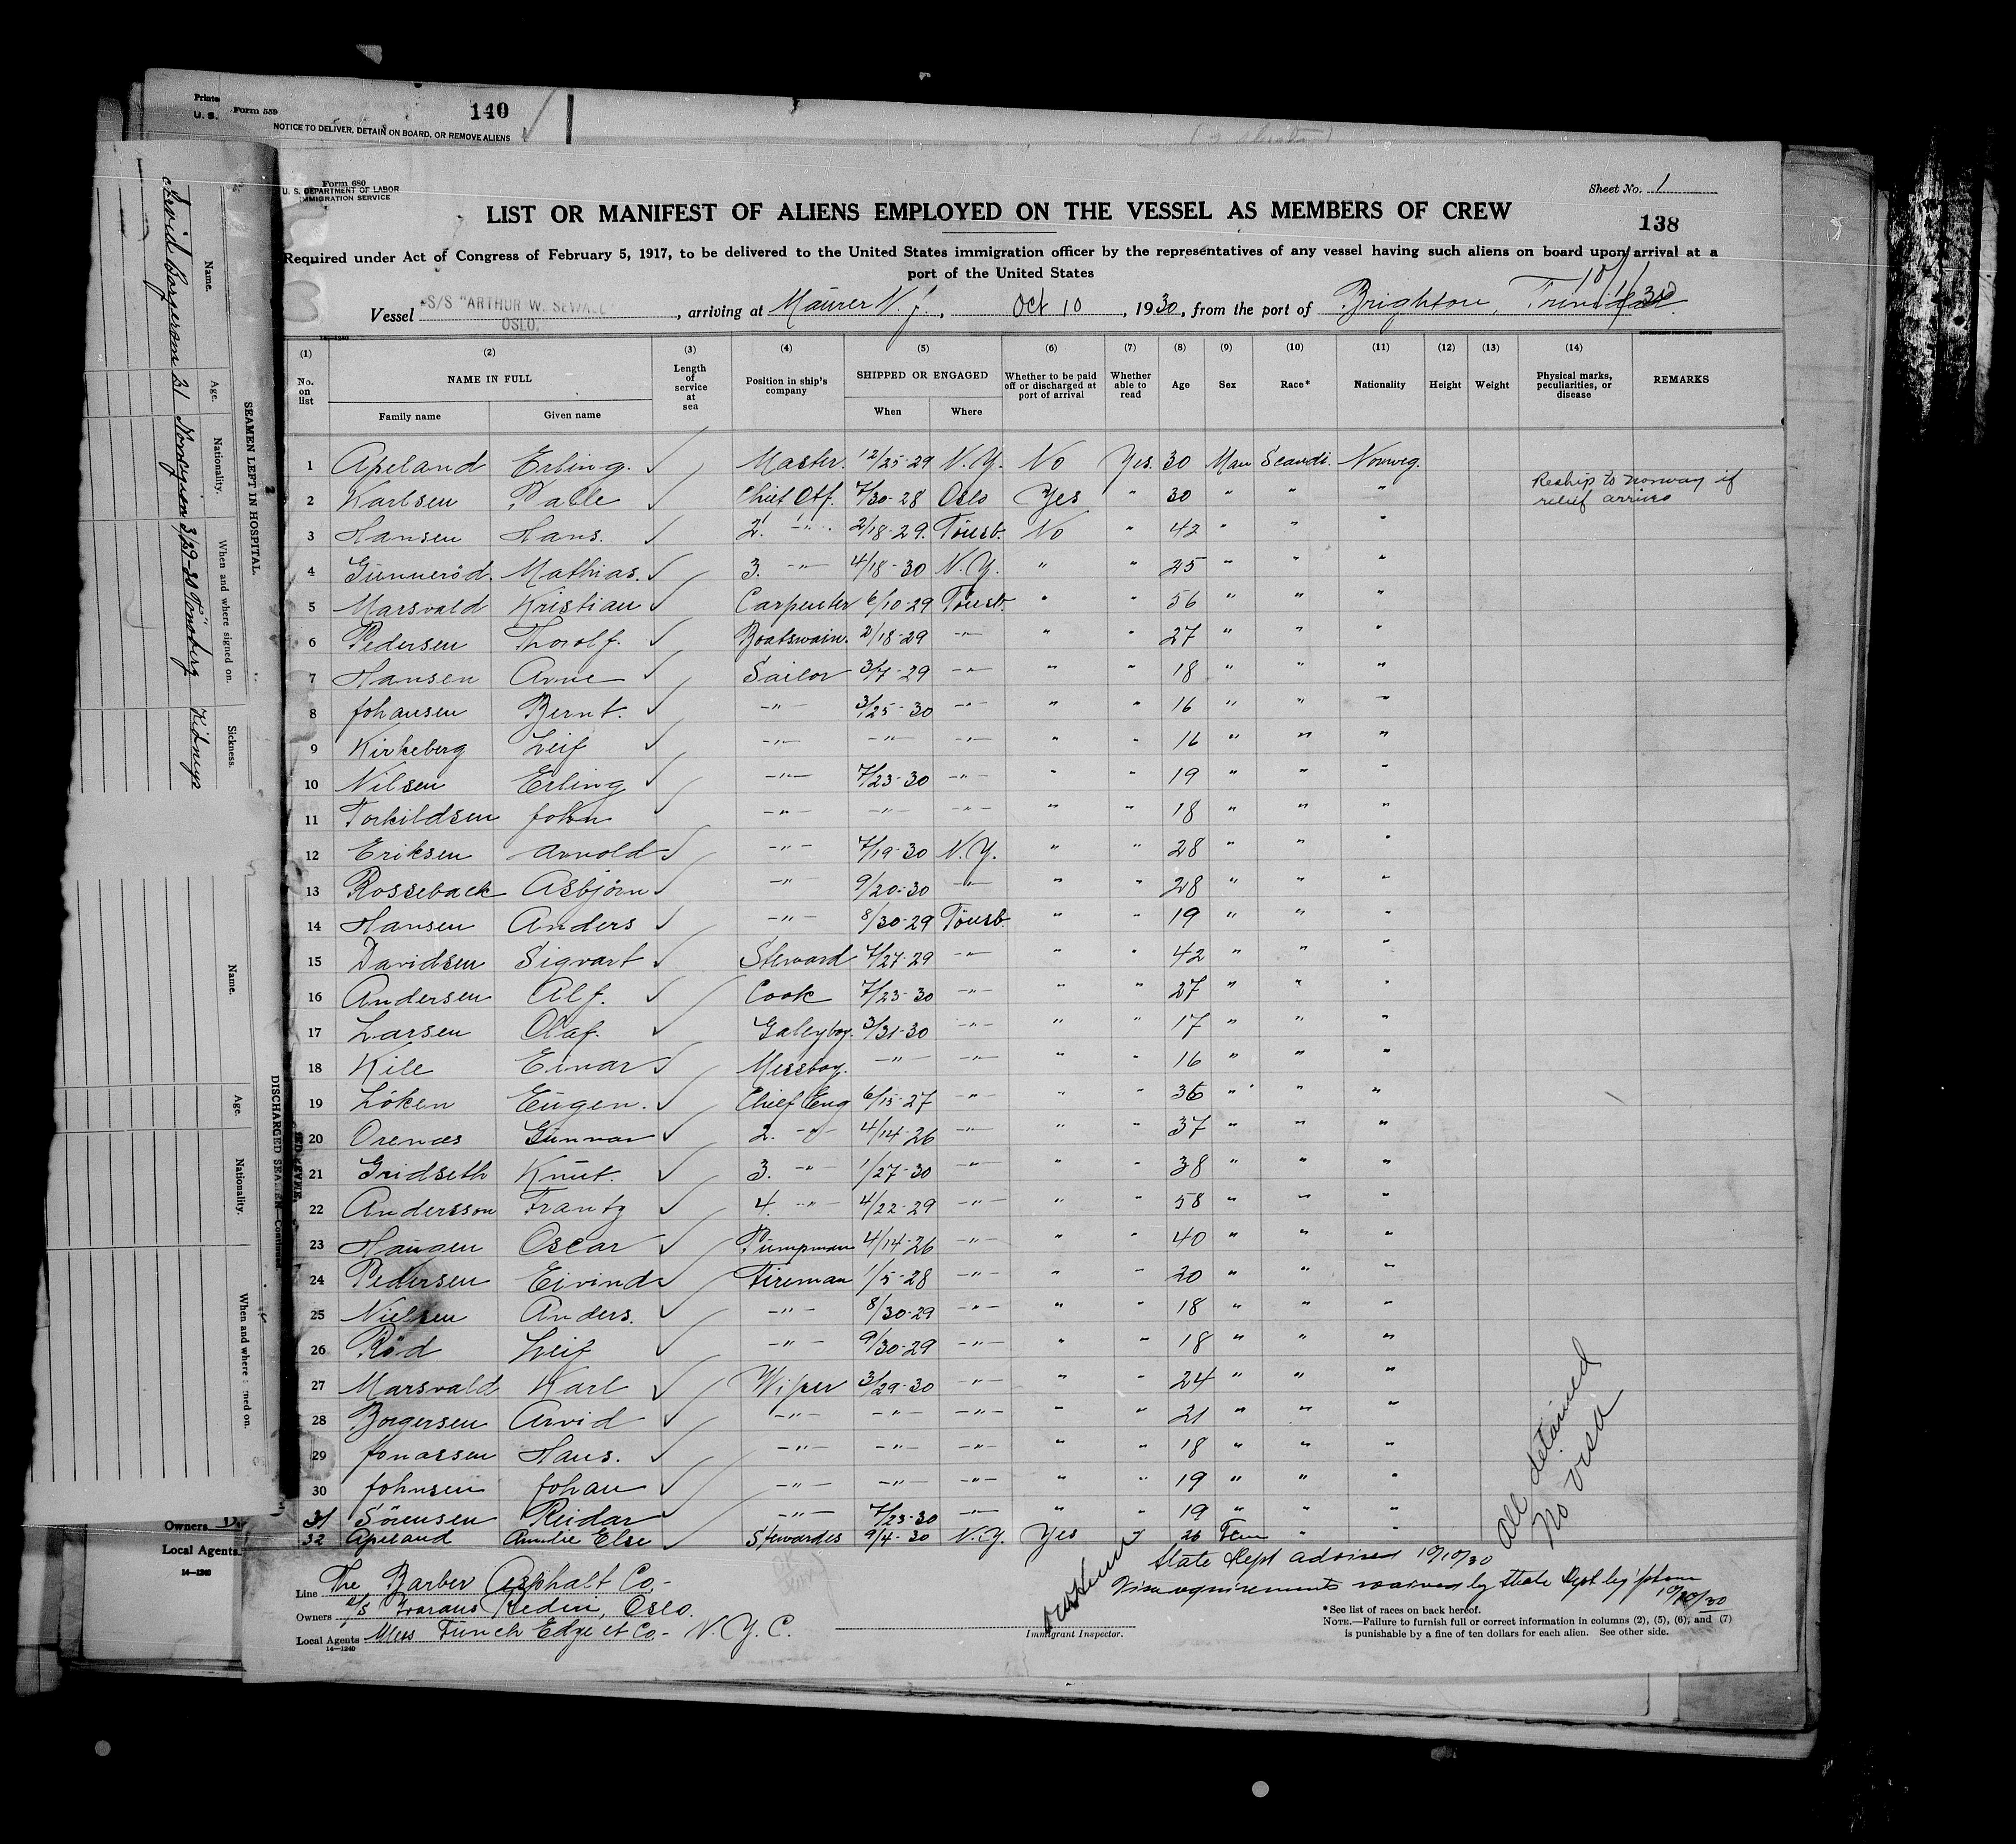 Printe
U. S.
Form 559
140
NOTICE TO DELIVER, DETAIN ON BOARD, OR REMOVE ALIENS
Form 680
U. S. DEPARTMENT OF LABOR
IMMIGRATION SERVICE
Sheet No. 1
LIST OR MANIFEST OF ALIENS EMPLOYED ON THE VESSEL AS MEMBERS OF CREW
138
Required under Act of Congress of February 5, 1917, to be delivered to the United States immigration officer by the representatives of any vessel having such aliens on board upon arrival at a
port of the United States
Vessel S/S "ARTHUR W. SEWALL" OSLO, arriving at Maurer N.J., Oct 10, 1930, from the port of Brighton, Trinidad.
14-1240
(1) (2) (3) (4) (5) (6) (7) (8) (9) (10) (11) (12) (13) (14)
No. on list NAME IN FULL Length of service at sea Position in ship's company SHIPPED OR ENGAGED Whether to be paid off or discharged at port of arrival Whether able to read Age Sex Race* Nationality Height Weight Physical marks, peculiarities, or disease REMARKS
Family name Given name When Where
1 Apeland Erling. Master. 12/25-29 N.Y. No Yes. 30 Man Scandi. Norweg.
2 Karlsen Palle Chief Off. 7/30-28 Oslo Yes " 30 " " " Reship to Norway if relief arrives
3 Hansen Hans. 2. -"- 2/18-29. Tönsb. No " 42 " " "
4 Gunneröd. Mathias. 3. -"- 4/18-30 N.Y. " " 25 " " "
5 Marsvald Kristian Carpenter 6/10-29 Tönsb. " " 56 " " "
6 Pedersen Thorolf. Boatswain. 2/18-29 -"- " " 27 " " "
7 Hansen Arne Sailor 3/7-29 -"- " " 18 " " "
8 Johansen Bernt. -"- 3/25-30 -"- " " 16 " " "
9 Kirkeberg Leif -"- -"- -"- " " 16 " " "
10 Nilsen Erling -"- 7/23-30 -"- " " 19 " " "
11 Torkildsen John -"- -"- -"- " " 18 " " "
12 Eriksen Arnold -"- 7/19-30 N.Y. " " 28 " " "
13 Rosseback Asbjörn -"- 9/20-30 -"- " " 28 " " "
14 Hansen Anders -"- 8/30-29 Tönsb. " " 19 " " "
15 Davidsen Sigvart Steward 7/27-29 -"- " " 42 " " "
16 Andersen Alf. Cook 7/23-30 -"- " " 27 " " "
17 Larsen Olaf. Galeyboy. 3/31-30 -"- " " 17 " " "
18 Kile Einar Messboy. -"- -"- " " 16 " " "
19 Löken Eugen. Chief Eng 6/15-27 -"- " " 36 " " "
20 Orenæs Gunnar 2. -"- 4/14-26 -"- " " 37 " " "
21 Gridseth Knut. 3. -"- 1/27-30 -"- " " 38 " " "
22 Andersson Frantz 4. -"- 4/22-29 -"- " " 58 " " "
23 Haugen Oscar Pumpman 4/14-26 -"- " " 40 " " "
24 Pedersen Eivind Fireman 1/5-28 -"- " " 20 " " "
25 Nielsen Anders. -"- 8/30-29 -"- " " 18 " " "
26 Röd Leif -"- 9/30-29 -"- " " 18 " " "
27 Marsvald Karl Wiper 3/29-30 -"- " " 24 " " "
28 Borgersen Arvid -"- -"- -"- " " 21 " " "
29 Jonassen Hans. -"- -"- -"- " " 18 " " "
30 Johnsen Johan -"- -"- -"- " " 19 " " "
31 Sörensen Reidar -"- 7/23-30 -"- " " 19 " " "
32 Apeland Amelie Else Stewardes 9/4-30 N.Y. Yes " 26 Fem " "
All detained
No visa
State Dept advised 10/10/30
Visa requirements waived by State Dept by 'phone
10/10/30
Line The Barber Asphalt Co.-
Owners Rederi, Oslo.
Local Agents Mess Funch Edye et Co.- N.Y.C.
14-1240
Immigrant Inspector.
*See list of races on back hereof.
NOTE.—Failure to furnish full or correct information in columns (2), (5), (6), and (7)
is punishable by a fine of ten dollars for each alien. See other side.
SEAMEN LEFT IN HOSPITAL.
Name. Age. Nationality. When and where signed on. Sickness.
31 Norwegian 3/29-30 Tönsberg Kidneys
DISCHARGED SEAMEN—Continued
Name. Age. Nationality. When and where signed on.
Owners
Local Agents
14-1240